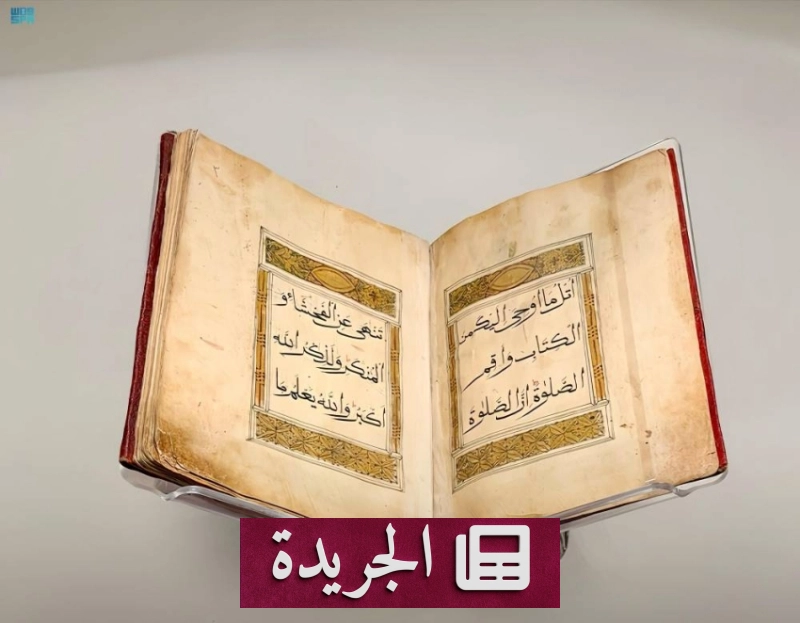 اتل ما اوحى اليك من
الكتاب واقم
الصلوة ان الصلوة
تنهى عن الفحشاء و
المنكر ولذكر الله
اكبر والله يعلم ما
الجريدة